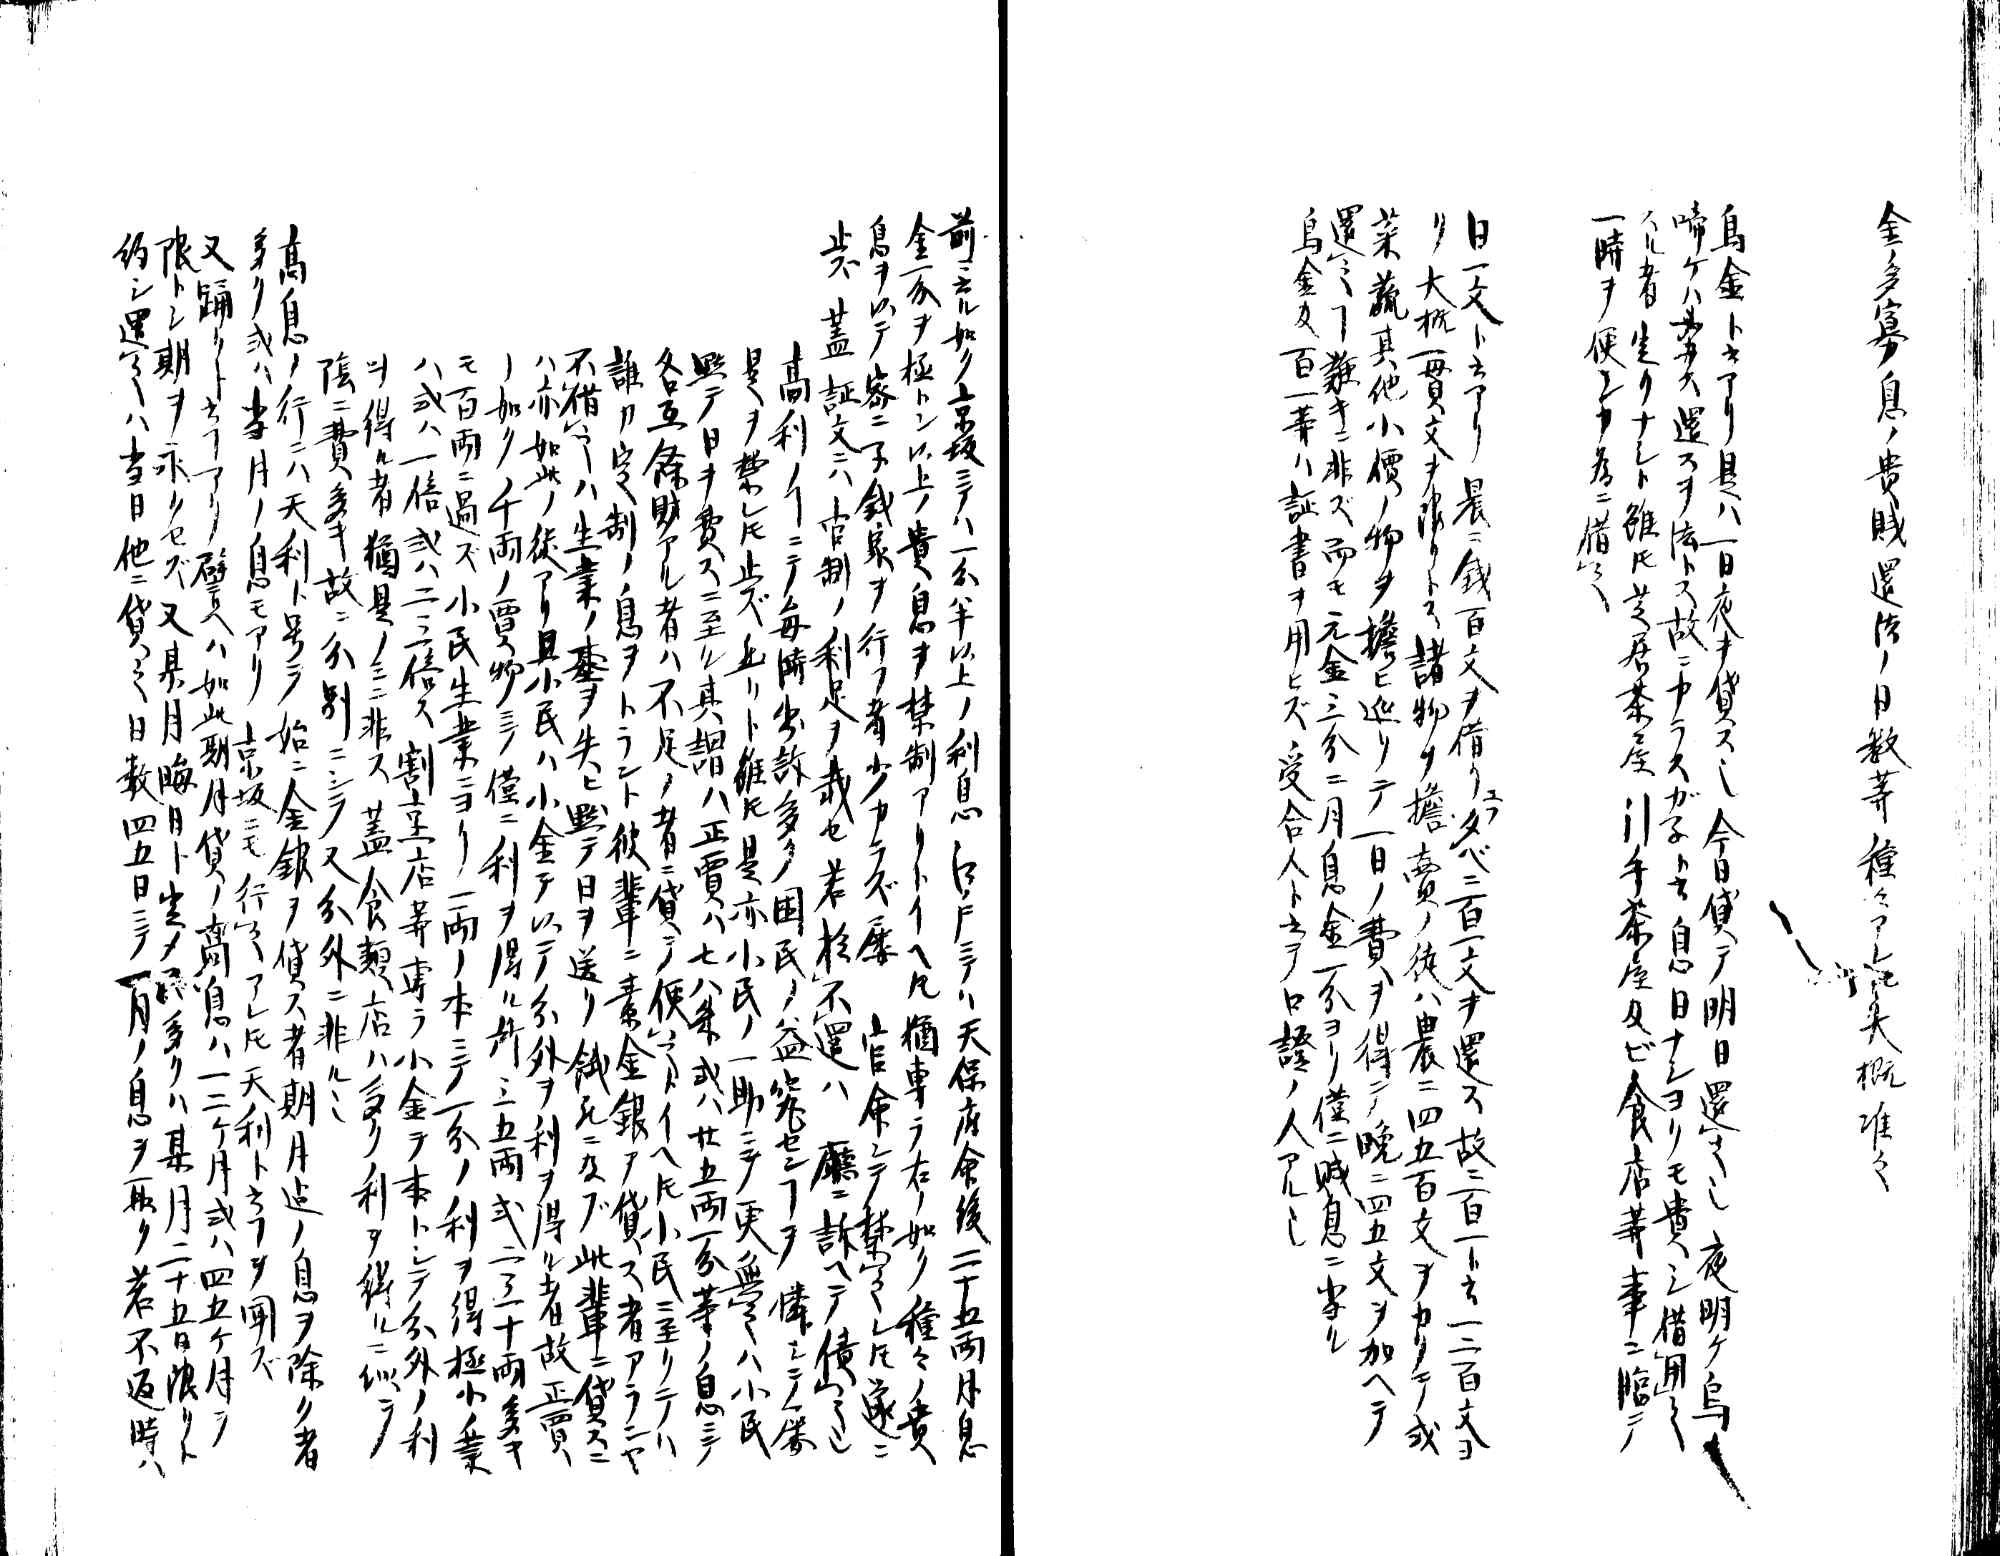 金ノ多寡息ノ貴賎還法ノ日数等種々アレ𪜈大概准々
烏金ト云アリ是ハ一日夜ヲ貸ス也今日貸テ明日還サシム也夜明ケ烏
啼ケハ必ス還スヲ法トス故ニカラスガネト云息日ナシヨリモ貴シ借用
スル者定リナシト雖𪜈芝居茶屋引手茶屋及ビ食店等事ニ臨テ
一時ヲ便センカ為ニ借ル也
日一文ト云アリ晨ニ銭百文ヲ借リ夕ベニ百一文ヲ還ス故ニ百一ト云一二百文ヨ
リ大概一貫文ヲ限リトス諸物ヲ擔賣ノ徒ハ農ニ四五百文ヲカリテ或
菜蔬其他小價ノ物ヲ擔ヒ巡リテ一日ノ費ヲ得テ晩ニ四五文ヲ加ヘテ
還ス𬼀難キニ非ズ而モ元金三分ニ月息金一分ヨリ僅ニ賎息ニ当ル
烏金及百一等ハ証書ヲ用ヒズ受合人ト云テ口證ノ人アル也
前ニ云ル如ク京坂ニテハ一分半以上ノ利息江戸ニテハ天保府命後二十五両月息
金一分ヲ極トシ以上ノ貴息ヲ禁制アリトイヘ𪜈猶専ラ右ノ如ク種々ノ貴
息ヲ以テ密ニ子銭家ヲ行フ者少カラズ屡官命シテ禁之シ𪜈遂ニ
止ズ蓋証文ニハ官制ノ利足ヲ載セ若於不還ハ廳ニ訴ヘテ債之也
高利ノ𬼀ニテ毎時出訴多ク困民ノ益究センヿヲ憐ミテ屡
是ヲ禁レ𪜈止ズ止リト雖𪜈是亦小民ノ一助ニテ更ニ無之ハ小民
黙テ日ヲ費スニ至ル其謂ハ正賈ハ七八朱或ハ廿五両一分等ノ息ニテ
各互餘財アル者ハ不足ノ者ニ貸テ便之トイヘ𪜈小民ニ至リテハ
誰カ定制ノ息ヲトラント彼輩ニ素金銀ヲ貸ス者アランヤ
不借之ハ生業ノ基ヲ失ヒ黙テ日ヲ送リ餓死ニ及ブ此輩ニ貸スニ
ハ亦如此ノ徒アリ且小民ハ小金ヲ以テ分外ヲ利ヲ得ル者故正賈
ノ如ク千両ノ賈物ニテ僅ニ利ヲ得ル所三五両或二三十両多キ
モ百両ニ過ズ小民生業ニヨリ一両ノ本ニテ一分ノ利ヲ得極小ノ業
ハ或ハ一倍或ハ二三倍ス割烹店等専ラ小金ヲ本トシテ分外ノ利
ヲ得ル者猶是ノミニ非ス蓋食類店ハ多ク利ヲ得ルニ似テ
陰ニ費多キ故ニ分別ニシテ又分外ニ非ル也
高息ノ行ニハ天利ト号テ始ニ金銀ヲ貸ス者期月迄ノ息ヲ除ク者
多ク或ハ当月ノ息モアリ京坂ニモ行之アレ𪜈天利ト云フヲ聞ズ
又踊リト云フアリ譬ヘハ如此期月貸ノ高息ハ一二ケ月或ハ四五ケ月ヲ
限トシ期ヲ永クセズ又某月晦日ト定メ𪜈多クハ某月二十五日限リト
約シ還之ハ当日他ニ貸之日数四五日ニテ一月ノ息ヲ取ク若不返時ハ